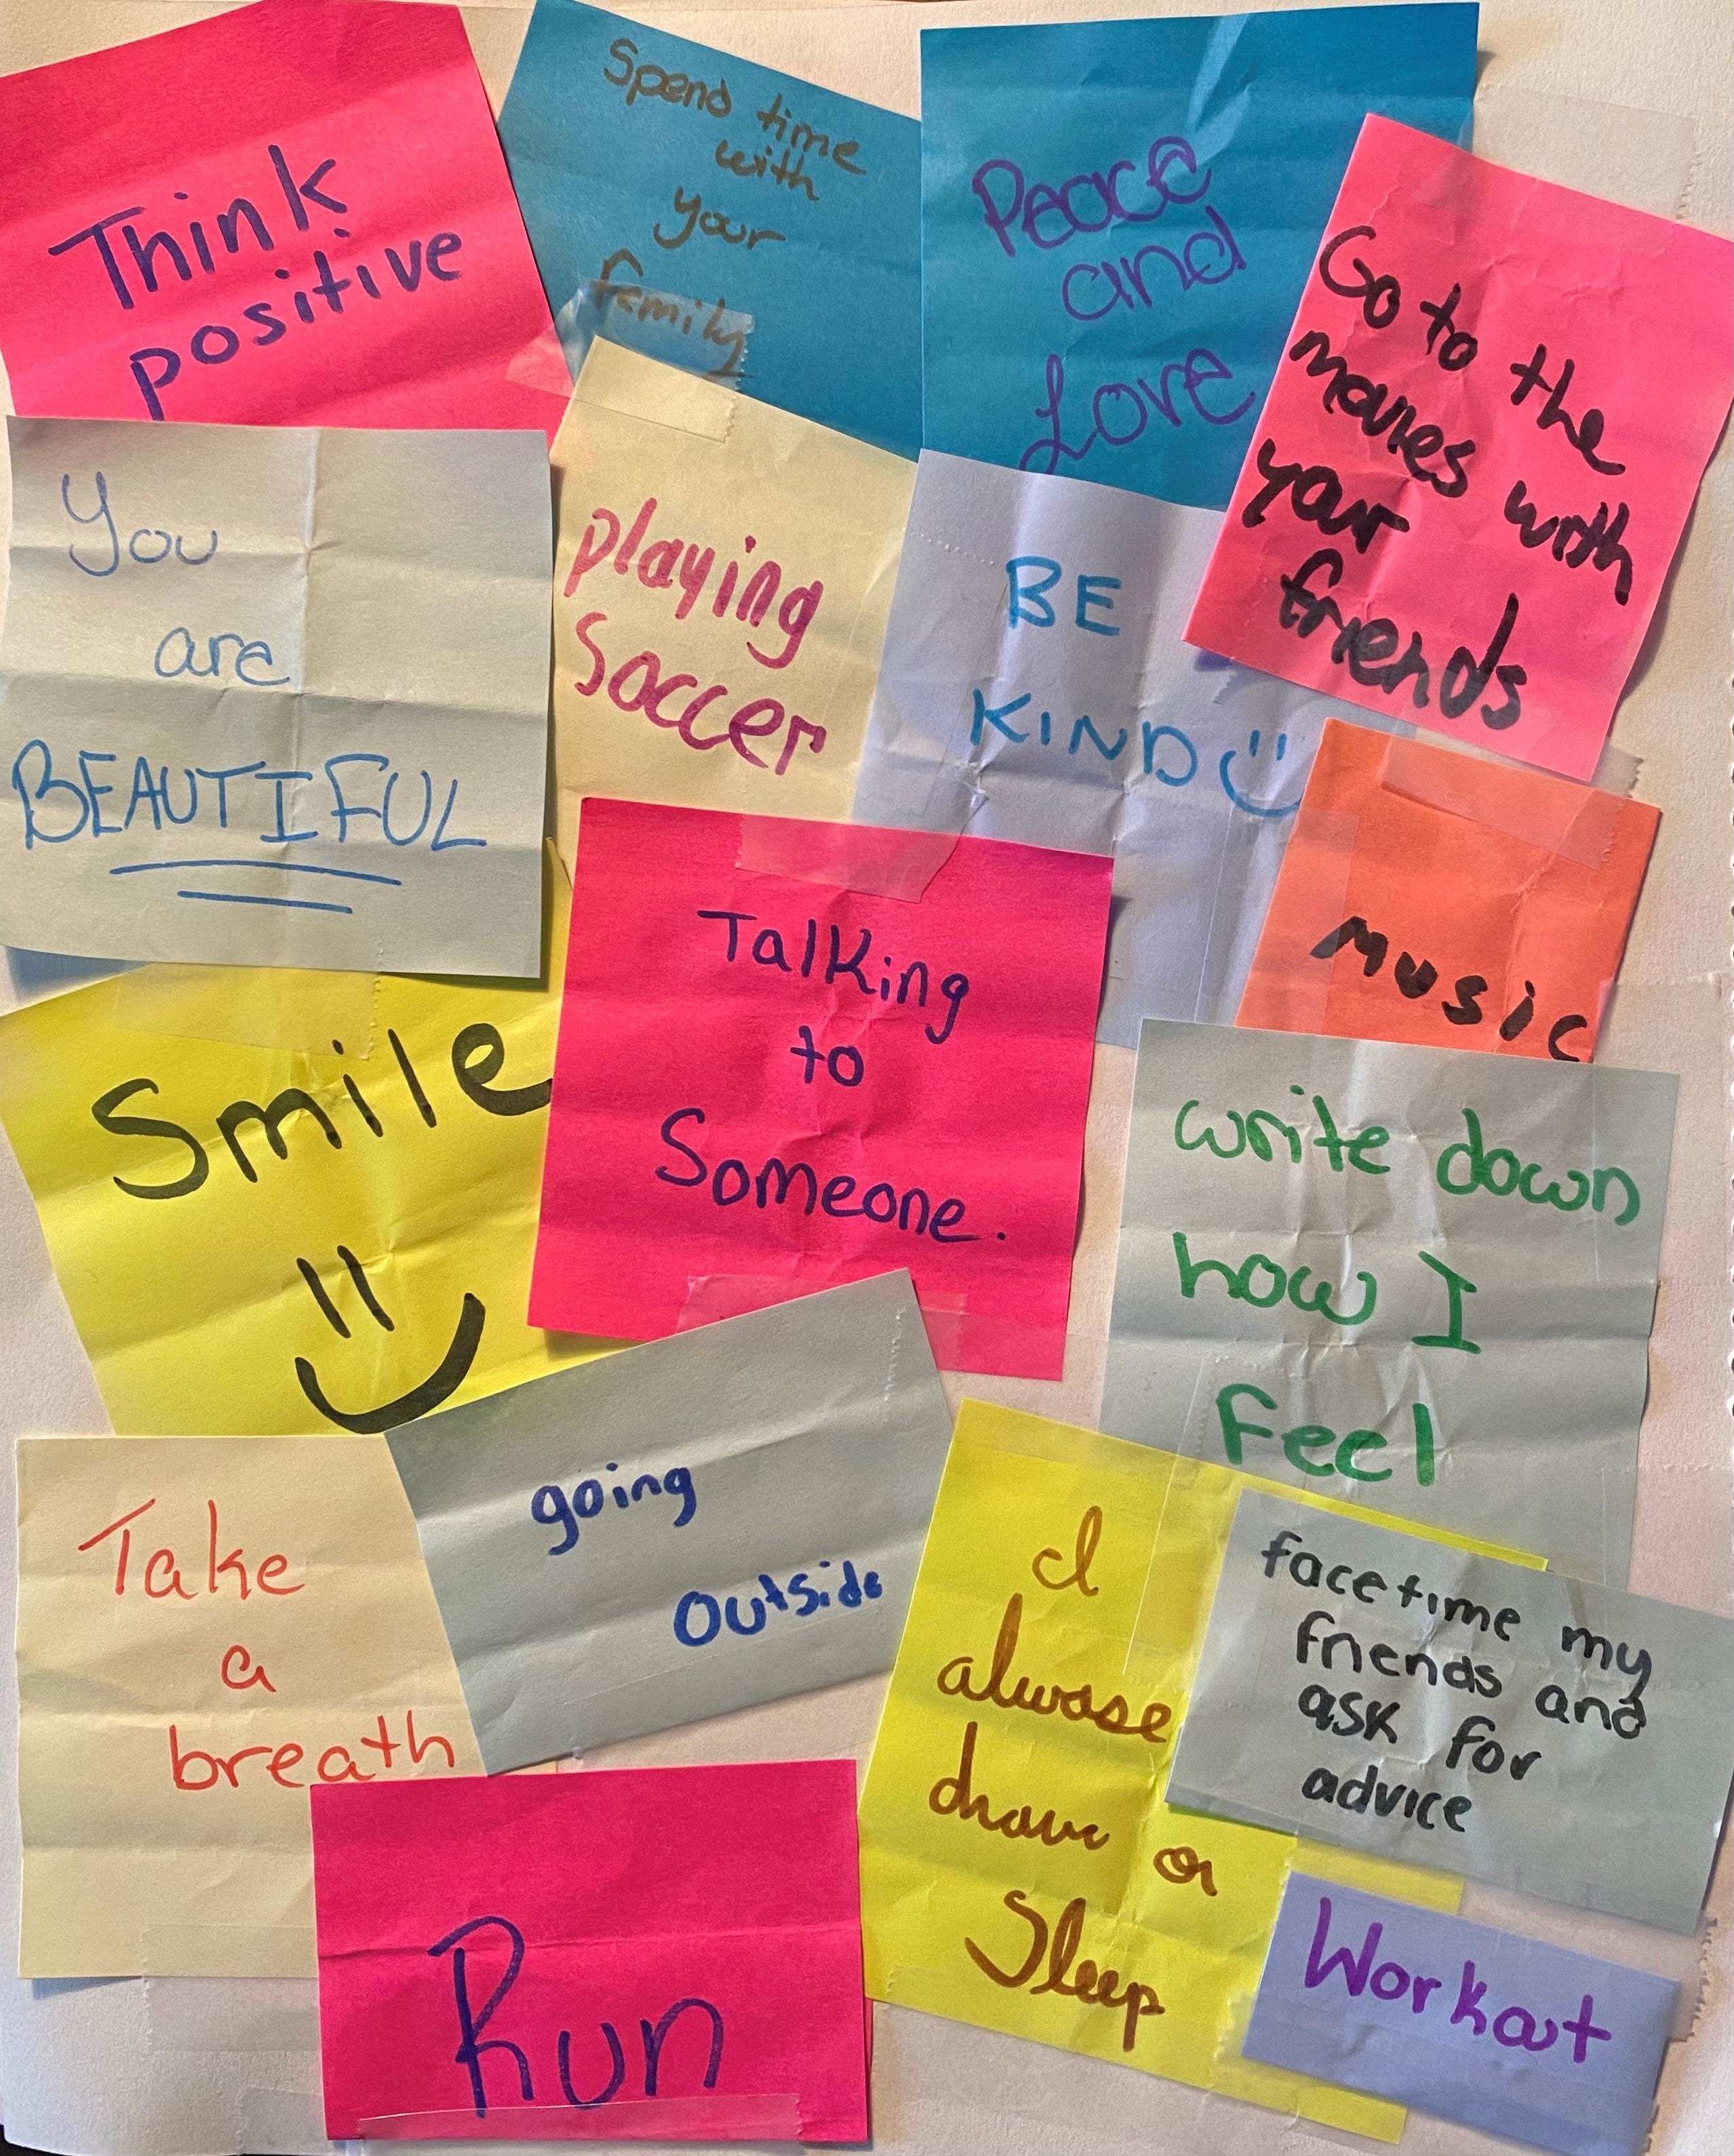 Think
positive
Spend time
with
your
family
Peace
and
Love
Go to the
movies with
your
friends
You
are
BEAUTIFUL
playing
Soccer
BE
KIND
music
Smile
Talking
to
Someone.
write down
how I
Feel
Take
a
breath
going
outside
I
alwase
draw or
Sleep
facetime my
friends and
ask for
advice
Run
Workout